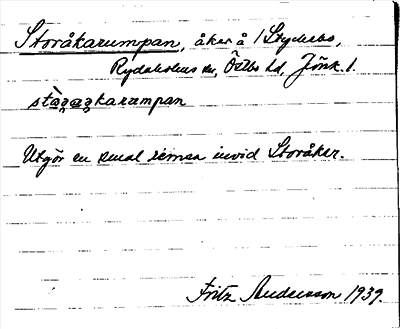 Storåkarumpan, åker å 1 Styvlabo,
Rydaholms sn, Östbo hd, Jönk. l.
karumpan
Utgör en smal remsa invid Storåker.
Fritz Andersson 1939.